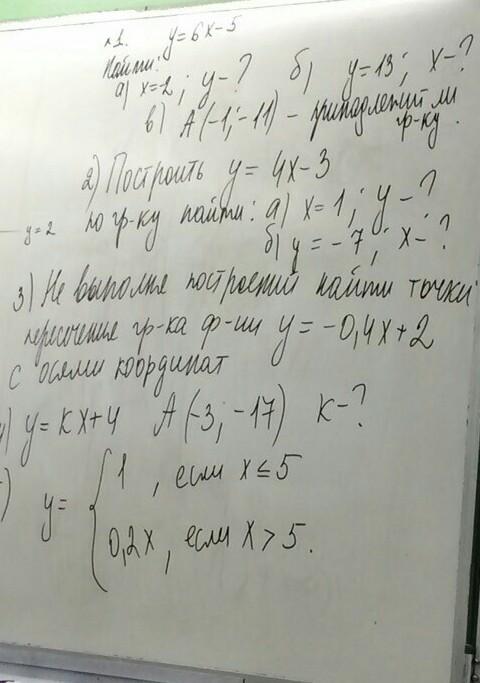 №1. y=6x-5
Найти:
а) x=2; y-? б) y=13; x-?
в) А(-1; -11) - принадлежит ли
гр-ку.
2) Построить y=4x-3
y=2 по гр-ку найти: а) x=1; y-?
б) y=-7; x-?
3) Не выполняя построений найти точки
пересечения гр-ка ф-ии y=-0,4x+2
с осями координат
) y=kx+4 А(-3; -17) k-?
) y= { 1, если x≤5
0,2x, если x>5.